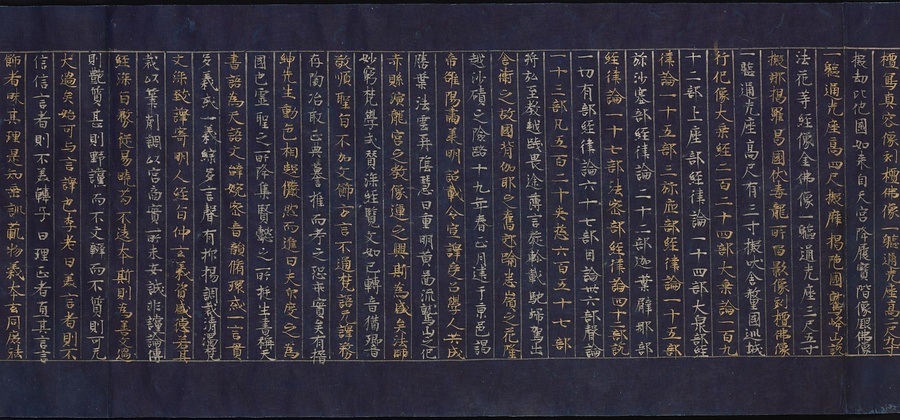 檀寫真容像刻檀佛像一軀通光座高尺九寸
擬劫比他國如來自天宮降履寶階像銀佛像
一軀通光座高四尺擬摩揭陁國鷲峯山說
法花等經像金佛像一軀通光座三尺五寸
擬那揭羅曷國伏毒龍所留影像刻檀佛像
一軀通光座高尺有三寸擬吠舍釐國巡城
行化像大乘經二百二十四部大乘論一百九
十二部上座部經律論一十四部大衆部經
律論一十五部三弥底部經律論一十五部
弥沙塞部經律論二十二部迦葉臂耶部
經律論一十七部法密部經律論四十二部說
一切有部經律論六十七部因論卅六部聲論
一十三部凡五百二十夾揔六百五十七部
將弘至教越踐畏途薄言旋軔載馳歸駕出
舍衛之故國背伽耶之舊郊踰葱嶺之危隥
越沙磧之險路十九年春正月達于京邑謁
帝雒陽肅承明詔載令宣譯爰召學人共成
勝業法雲再蔭慧日重明黃圖流鷲山之化
赤縣演龍宮之教像運之興斯爲盛矣法師
妙窮梵學式賛深經覽文如已轉音猶響
敬順聖旨不加文飾方言不通梵語无譯務
存陶冶取正典謩推而考之恐乖實矣有搢
紳先生動色相趣儼然而進曰夫印度之爲
國也靈聖之所降集賢懿之所挺生書稱天
書語爲天語文辞婉密音韻循環或一言貫
多義或一義綜多言聲有抑揚調裁清濁梵
文深致譯寄明人經旨仲玄義資盛德若其
裁以筆削調以宮商實所未安誠非讜論傳
經深旨務從易曉苟不違本斯則爲善文過
則艷質甚則野讜而不文辯而不質則可无
大過矣始可与言譯也李老曰美言者則不
信信言者則不美韓子曰理正者直其言言
飾者昧其理是知垂訓範物義本玄同庶祛